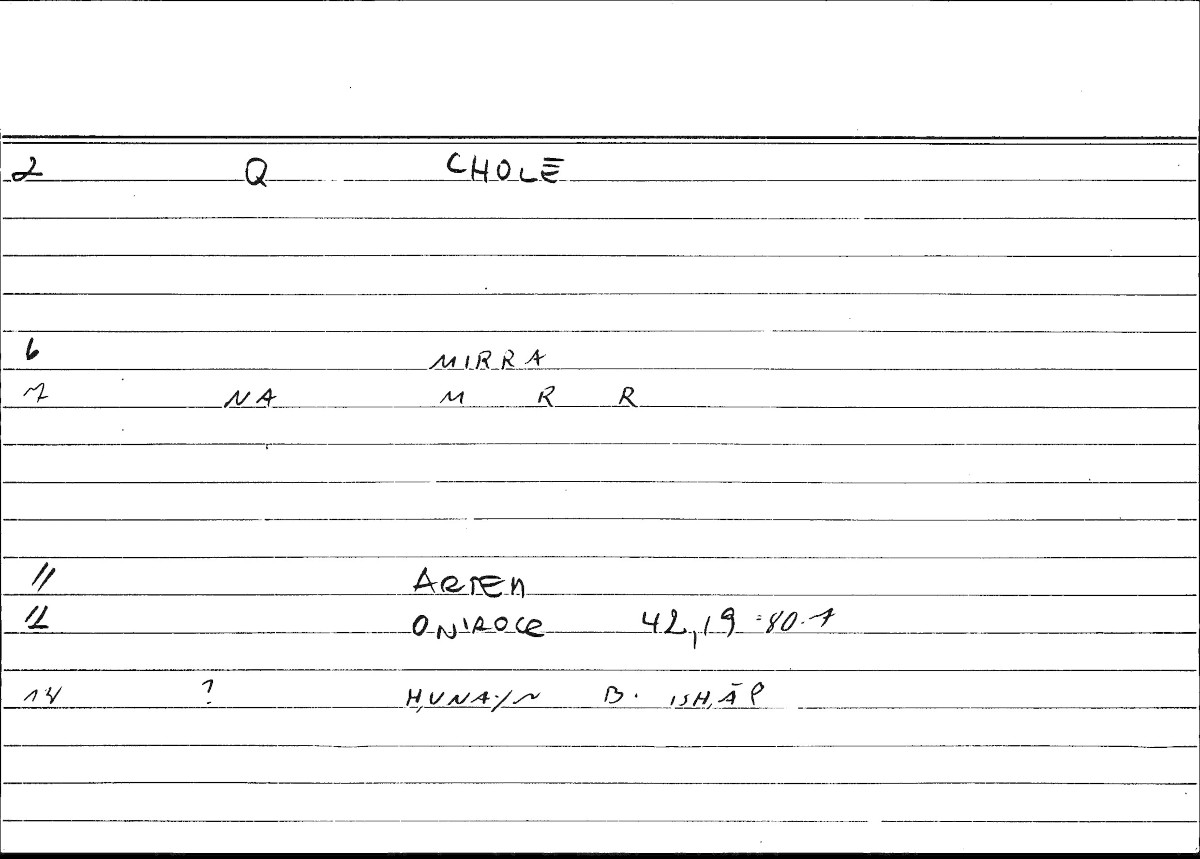 2 Q CHOLĒ
6 MIRRA
7 NA M R R
11 ARTEM
12 ONIROCR 42,19 = 80.7
14 ? ḤUNAYN B. ISḤĀQ